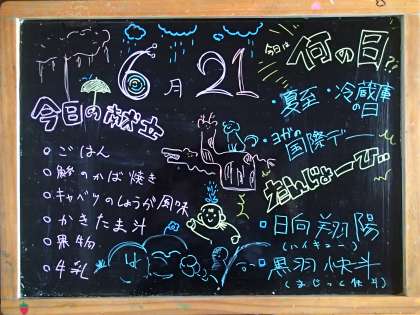 6月21
今日は
何の日?
・夏至・冷蔵庫の日
・ヨガの国際デー
今日の献立
○ごはん
○鯵のかば焼き
○キャベツのしょうが風味
○かきたま汁
○果物
○牛乳
たんじょーび...
・日向翔陽
(ハイキュー)
・黒羽快斗
(まじっく快斗)